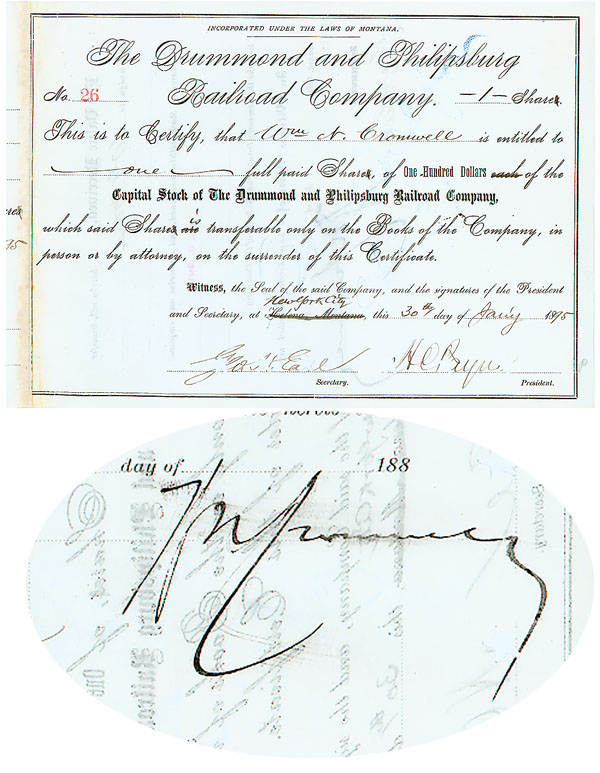 INCORPORATED UNDER THE LAWS OF MONTANA.
The Drummond and Philipsburg
No. 26 Railroad Company. —1— Shares.
This is to Certify, that Wm N. Cromwell is entitled to
one full paid Shares, of One Hundred Dollars each of the
Capital Stock of The Drummond and Philipsburg Railroad Company,
which said Shares are is transferable only on the Books of the Company, in
person or by attorney, on the surrender of this Certificate.
Witness, the Seal of the said Company, and the signatures of the President
New York City
and Secretary, at Helena, Montana, this 30th day of Jan'y 1895
Secretary. President.
day of 188